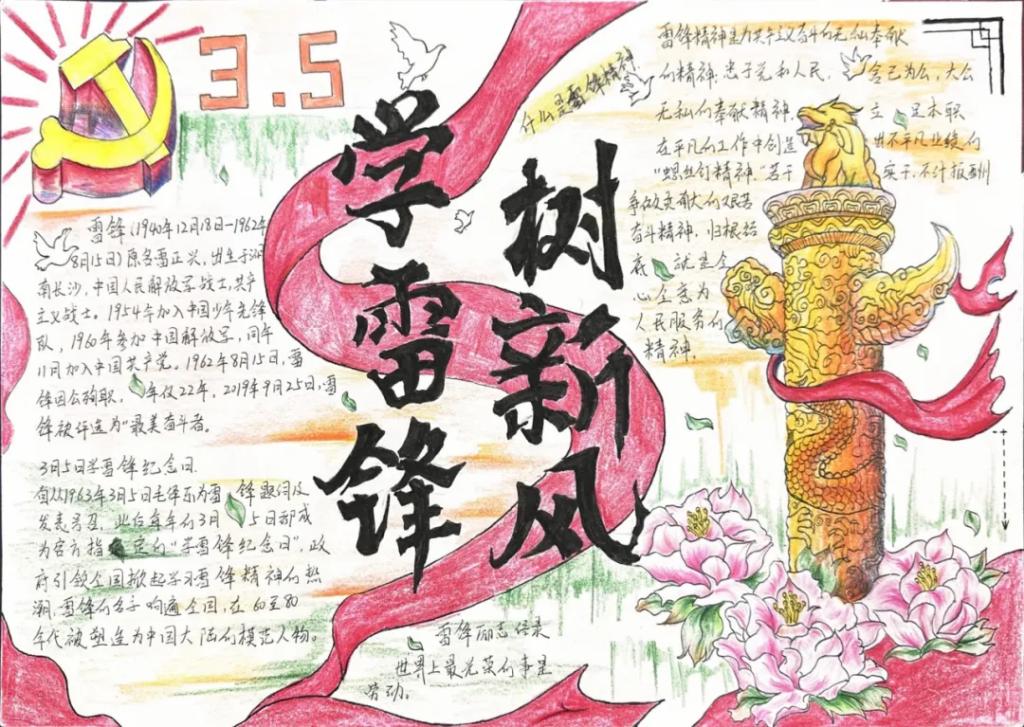 3.5
学雷锋
树新风
雷锋(1940年12月18日-1962年
8月15日)原名雷正兴,出生于湖
南长沙,中国人民解放军战士,共产
主义战士。1954年加入中国少年先锋
队,1960年参加中国解放军,同年
11月加入中国共产党。1962年8月15日,雷
锋因公殉职,年仅22年,2019年9月25日,雷
锋被评选为"最美奋斗者。
3月5日学雷锋纪念日
自从1963年3月5日毛泽东为雷锋题词及
发表号召,此后每年的3月5日都成
为官方指定的"学雷锋纪念日",政
府引领全国掀起学习雷锋精神的热
潮,雷锋的名字响遍全国,在60至80
年代被塑造为中国大陆的模范人物。
什么是雷锋精神
雷锋精神是为共产主义奋斗的无私奉献
的精神;忠于党和人民,舍己为公,大公
无私的奉献精神,立足本职
在平凡的工作中创造出不平凡业绩的
"螺丝钉精神"苦干实干,不计报酬
争做贡献的艰苦
奋斗精神,归根结
底,就是全
心全意为
人民服务的
精神,
雷锋励志语录
世界上最光荣的事是
劳动。